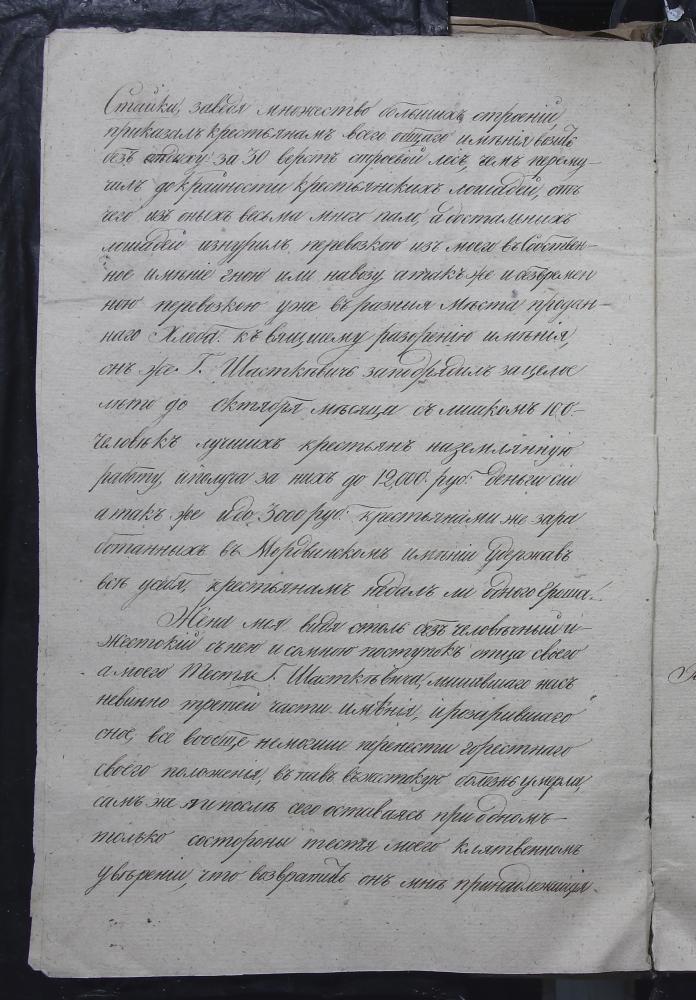 Стайки, заведя множество большихъ строеній,
приказалъ крестьянамъ всего общаго имѣнія возить
безъ отдыху за 30 верстъ строевой лесъ, чемъ перему-
чилъ до крайности крестьянскихъ лошадей, отъ
чего изъ оныхъ весьма много пали, а достальныхъ
лошадей изнурилъ перевозкою изъ моего въ Собствен-
ное имѣніе гною или навозу, а такъ же и безвремен
ною перевозкою уже въ разныя мѣста продан-
наго Хлеба. Къ вящшему разоренію имѣнія,
онъ же Г. Шасткѣвичъ заподрядилъ зацелое
лѣто до Октября мѣсяца съ лишкомъ 100-
человѣкъ лучшихъ крестьянъ наземлянную
работу, и получа за нихъ до 12,000 руб: деньги сіи
а такъ же и до 3000 руб: крестьянами же зара
ботанныхъ въ Мордвинскомъ имѣніи удержавъ
всѣ усебя, крестьянамъ недалъ ли одного гроша!
Жена моя видя столь безъ человѣчный и-
жестокій съ нею и сомною поступокъ отца своего
а моего Тестя Г. Шасткѣвича, лишившаго насъ
невинно третей части имѣнія, и розарившаго
оное, все вообще немогши перенести горестнаго
своего положенія, впавъ въжестокую болезнь умерла,
самъ же я и послѣ сего оставаясь при одномъ-
только состороны тестя моего клятвенномъ
увѣреніи, что возвратитъ онъ мнѣ принадлежащія